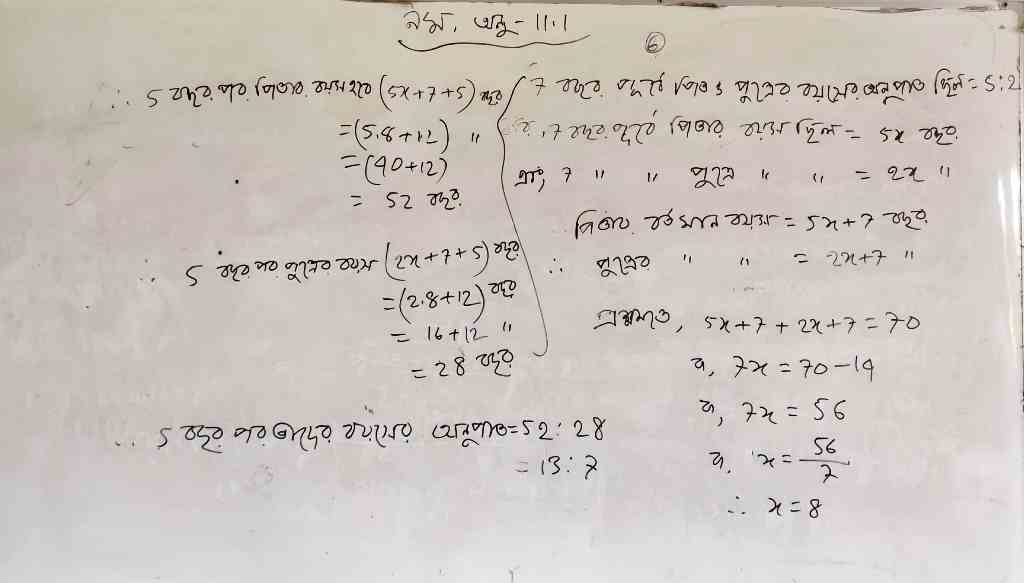 নবম, অনু - 11.1
⑥
7 বছর পূর্বে পিতা ও পুত্রের বয়সের অনুপাত ছিল = 5:2
7 বছর পূর্বে পিতার বয়স ছিল = 5x বছর
এবং, 7 " " পুত্রের " " = 2x "
পিতার বর্তমান বয়স = 5x+7 বছর
∴ পুত্রের " " = 2x+7 "
প্রশ্নমতে, 5x+7+2x+7=70
বা, 7x=70-14
বা, 7x = 56
বা, x = 56/7
∴ x=8
∴ 5 বছর পর পিতার বয়স হবে (5x+7+5) বছর
=(5.8+12) "
=(40+12)
= 52 বছর
∴ 5 বছর পর পুত্রের বয়স (2x+7+5) বছর
=(2.8+12) বছর
= 16+12 "
= 28 বছর
∴ 5 বছর পর তাদের বয়সের অনুপাত=52:28
= 13:7